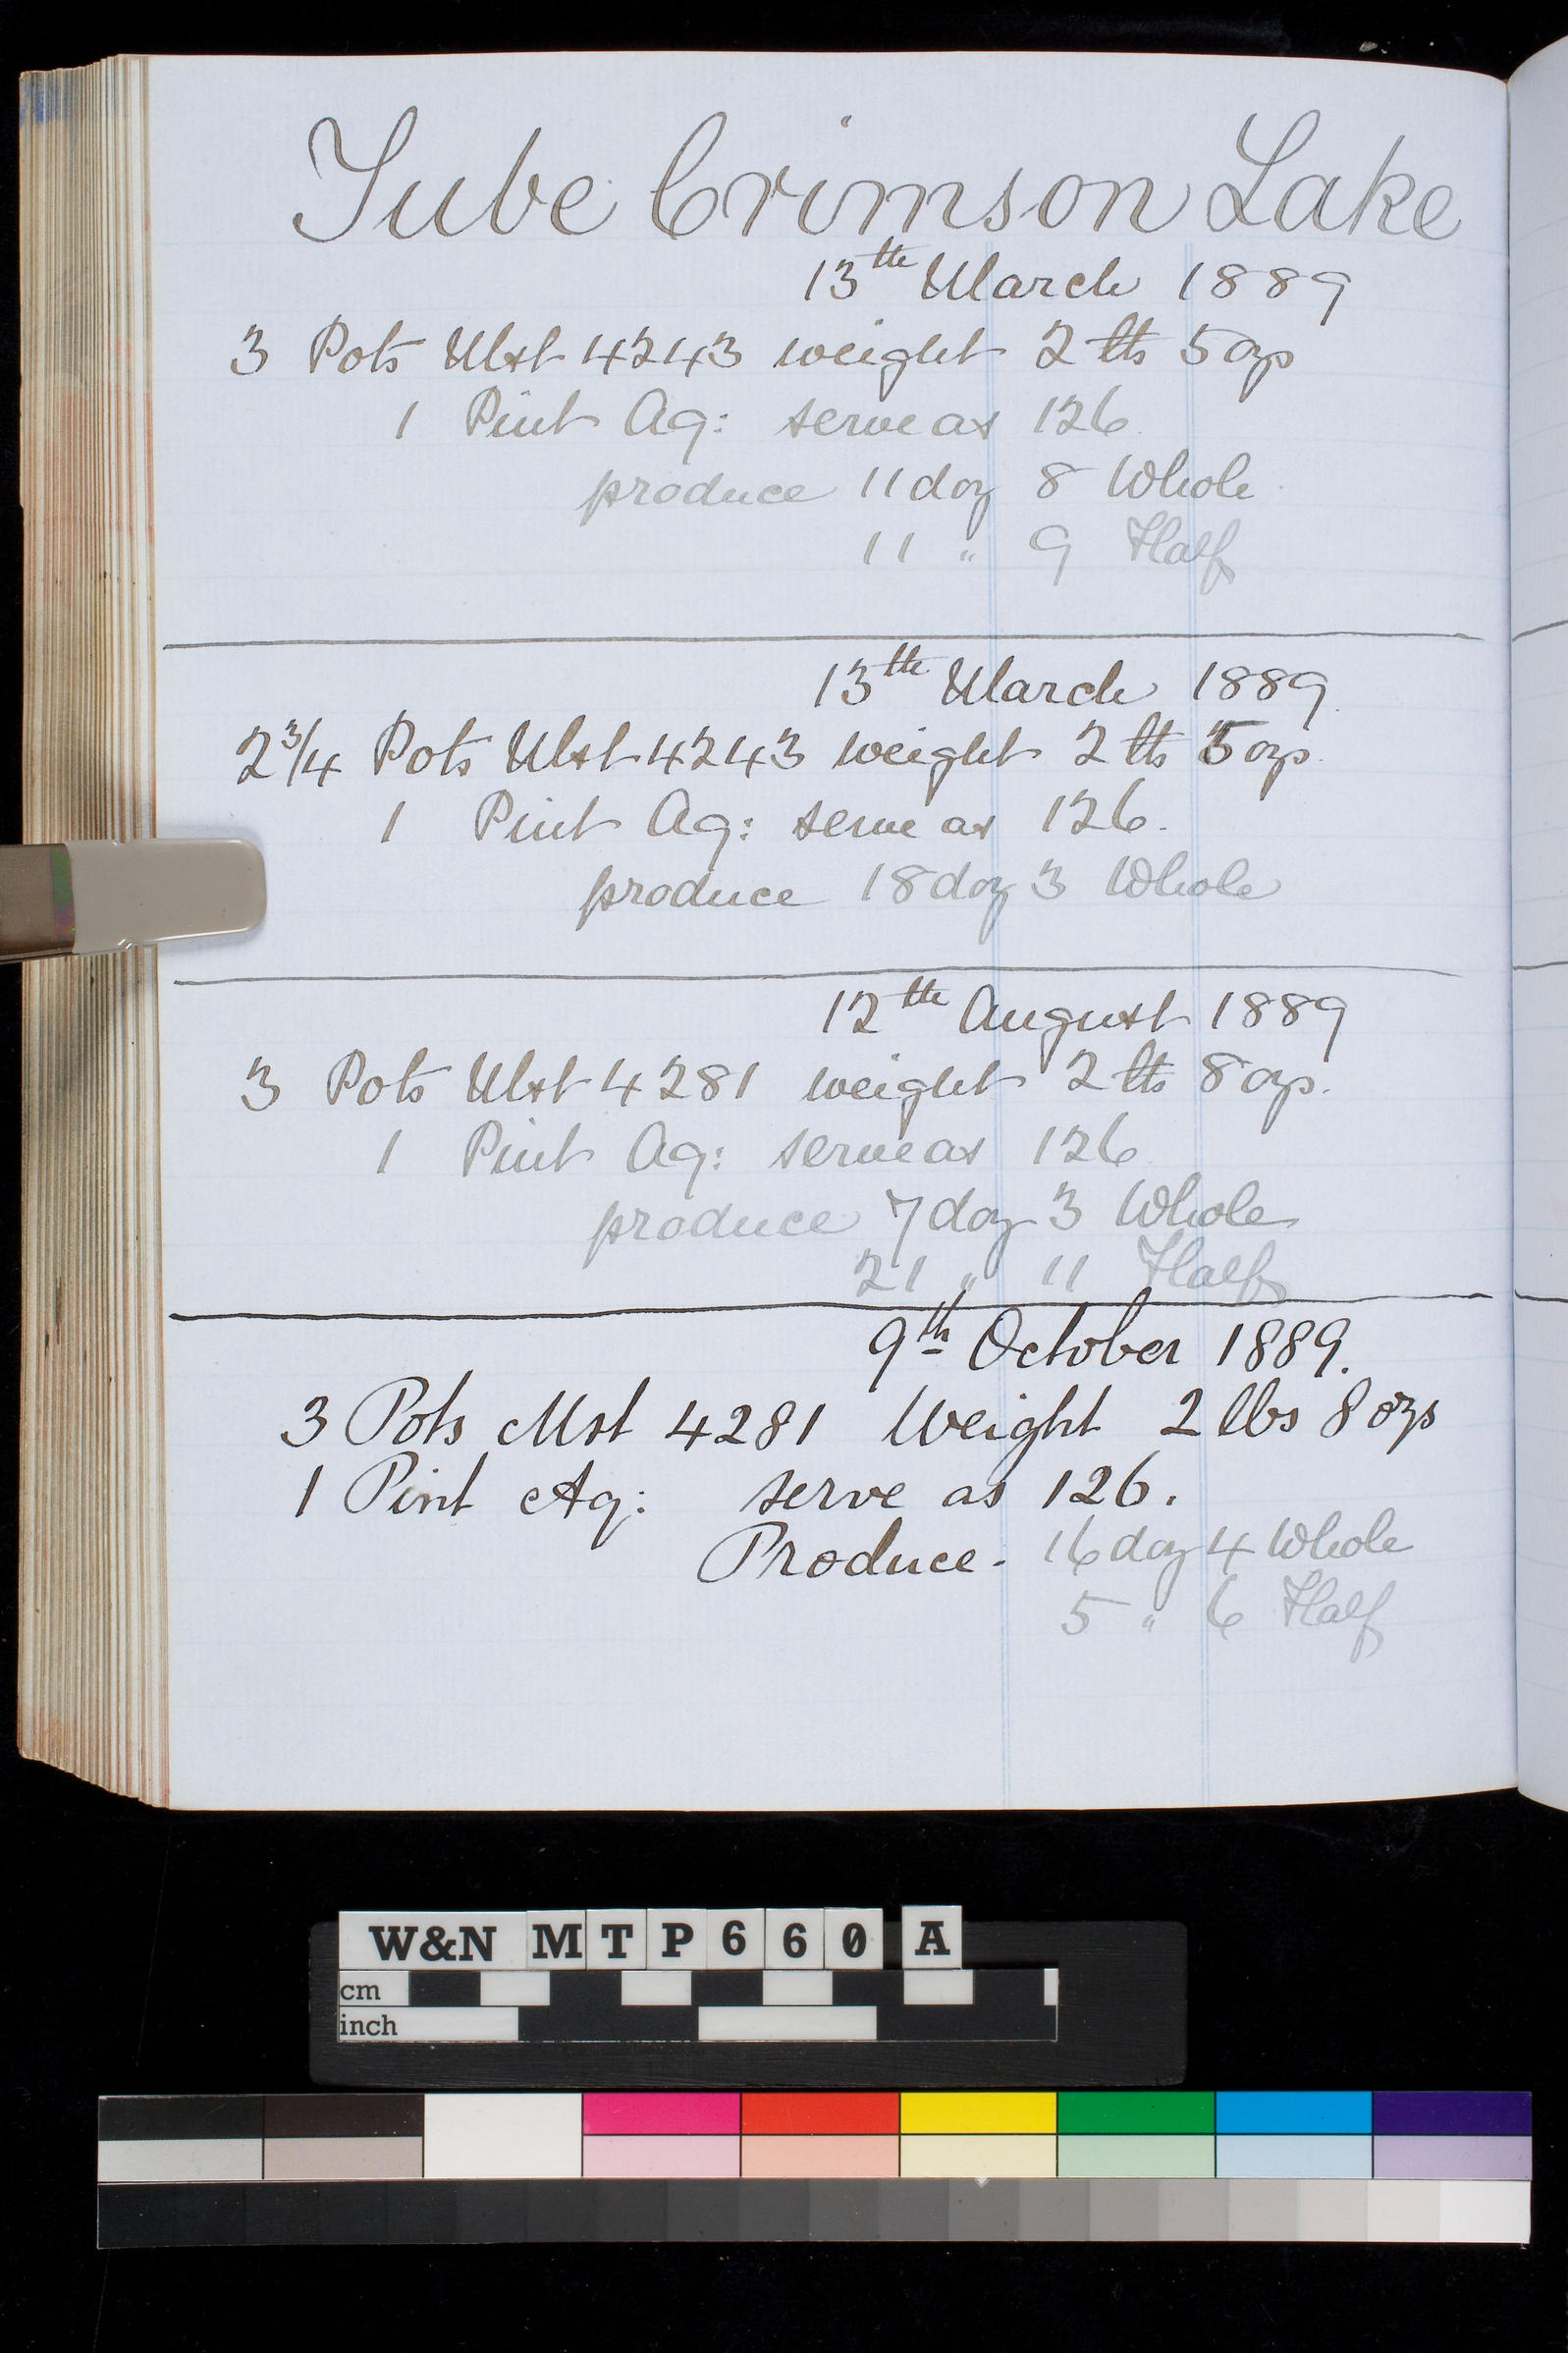 Tube Crimson Lake
13th March 1889
3 Pots Mst 4243 weight 2 lbs 5 ozs
1 Pint Aq: serve as 126
produce 11 doz 8 Whole
11 " 9 Half
13th March 1889
2 3/4 Pots Mst 4243 weight 2 lbs 5 ozs.
1 Pint Aq: serve as 126.
produce 18 doz 3 Whole
12th August 1889
3 Pots Mst 4281 weight 2 lbs 8 ozs.
1 Pint Aq: serve as 126
produce 7 doz 3 Whole
21 " 11 Half
9th October 1889.
3 Pots Mst 4281 Weight 2 lbs 8 ozs
1 Pint Aq: serve as 126.
Produce. 16 doz 4 Whole
5 " 6 Half
W&N MTP660 A
cm
inch